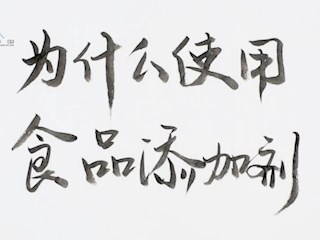 为什么使用
食品添加剂